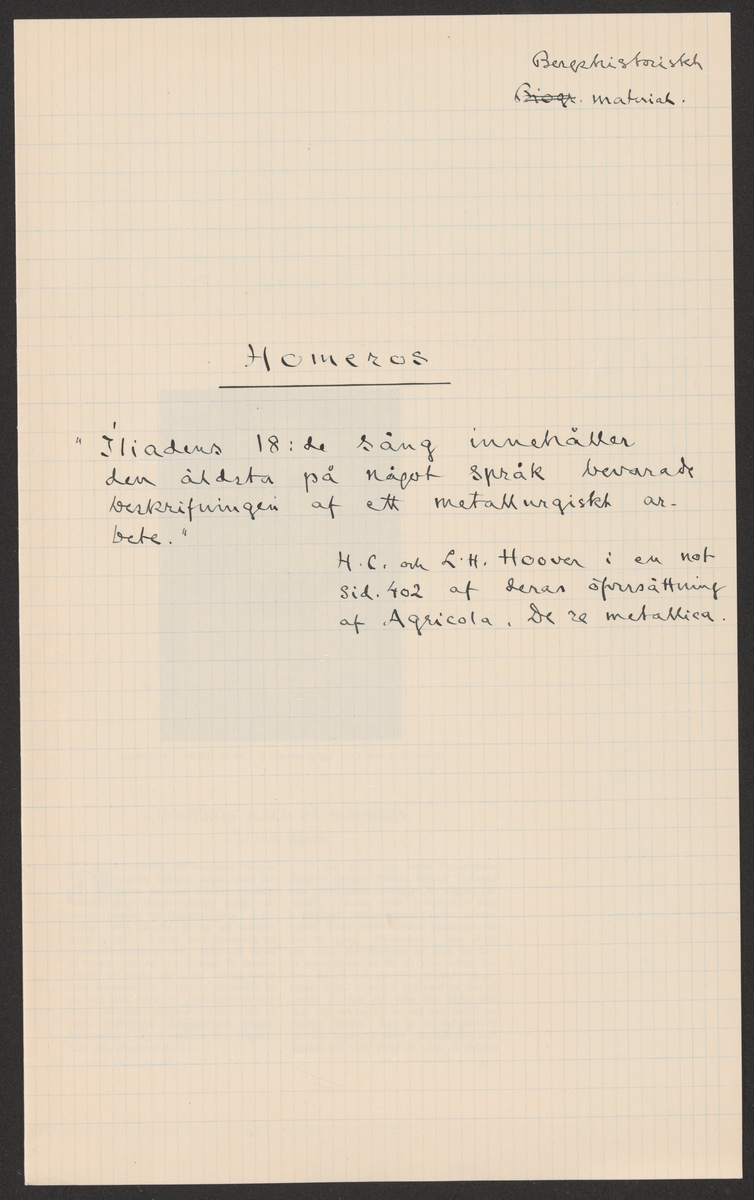 Bergshistoriskt
Biogr. material.
Homeros
" Iliadens 18:de sång innehåller
den äldsta på något språk bevarade
beskrifningen af ett metallurgiskt ar-
bete."
H. C. och L. H. Hoover i en not
Sid. 402 af deras öfversättning
af Agricola. De re metallica.